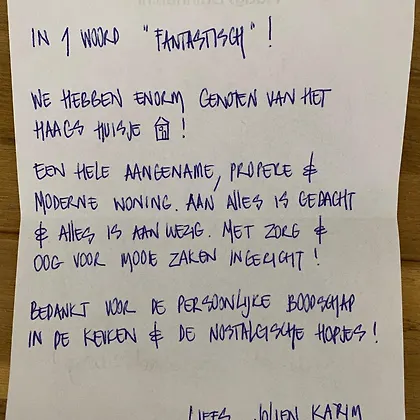 IN 1 WOORD "FANTASTISCH" !
WE HEBBEN ENORM GENOTEN VAN HET
HAAGS HUISJE !
EEN HELE AANGENAME, PROPERE &
MODERNE WONING. AAN ALLES IS GEDACHT
& ALLES IS AANWEZIG. MET ZORG &
OOG VOOR MOOIE ZAKEN INGERICHT !
BEDANKT VOOR DE PERSOONLIJKE BOODSCHAP
IN DE KEUKEN & DE NOSTALGISCHE HOPJES !
LIEFS, JOLIEN KARIM